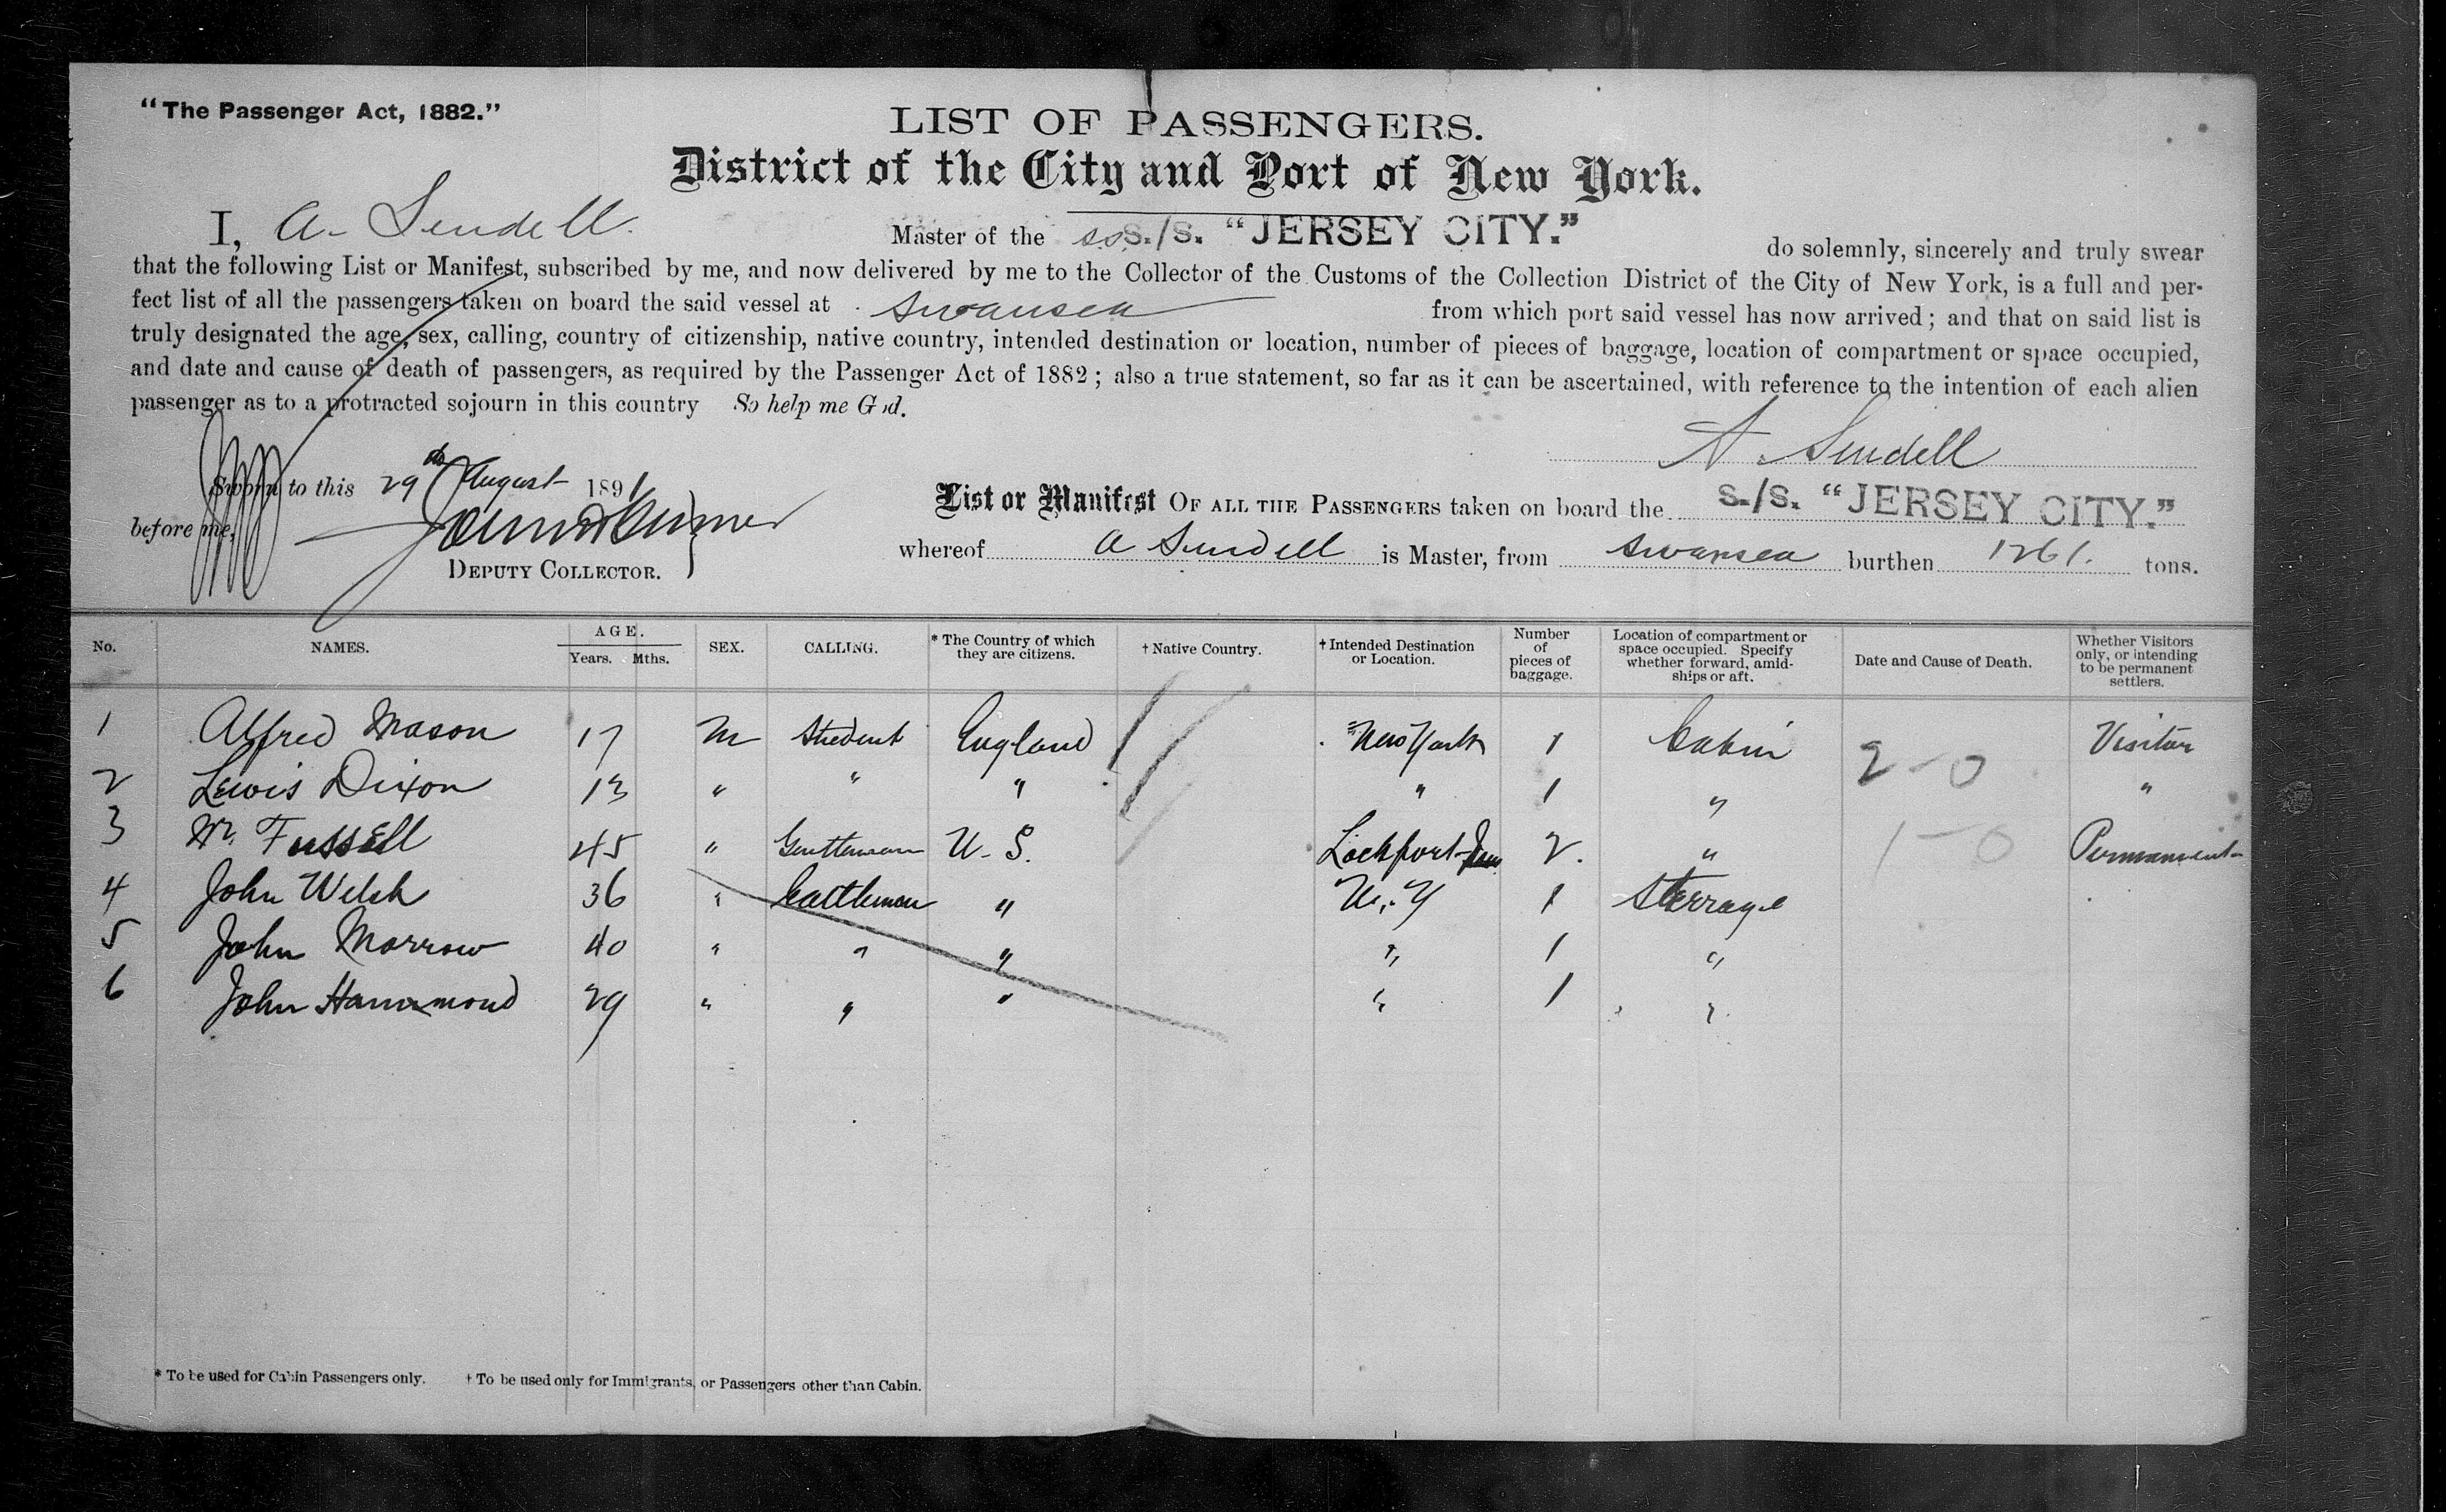 "The Passenger Act, 1882."
LIST OF PASSENGERS.
District of the City and Port of New York.
I, A. Sendell Master of the ss S./S. "JERSEY CITY." do solemnly, sincerely and truly swear
that the following List or Manifest, subscribed by me, and now delivered by me to the Collector of the Customs of the Collection District of the City of New York, is a full and per-
fect list of all the passengers taken on board the said vessel at Swansea from which port said vessel has now arrived; and that on said list is
truly designated the age, sex, calling, country of citizenship, native country, intended destination or location, number of pieces of baggage, location of compartment or space occupied,
and date and cause of death of passengers, as required by the Passenger Act of 1882; also a true statement, so far as it can be ascertained, with reference to the intention of each alien
passenger as to a protracted sojourn in this country So help me God.
A. Sendell
Sworn to this 29th August 1891
before me,
DEPUTY COLLECTOR.
List or Manifest OF ALL THE PASSENGERS taken on board the S./S. "JERSEY CITY."
whereof A Sendell is Master, from Swansea burthen 1261. tons.
No. NAMES. AGE. Years. Mths. SEX. CALLING. * The Country of which they are citizens. † Native Country. † Intended Destination or Location. Number of pieces of baggage. Location of compartment or space occupied. Specify whether forward, amid-ships or aft. Date and Cause of Death. Whether Visitors only, or intending to be permanent settlers.
1 Alfred Mason 17 M Student England New York 1 Cabin 2-0 Visitor
2 Lewis Dixon 13 " " " " 1 " "
3 Mr. Fussell 45 " Gentleman U.S. Lockport 2. " 1-0 Permanent
4 John Welsh 36 " Cattleman " N.Y 1 Sterrage
5 John Morrow 40 " " " " 1 "
6 John Hammond 29 " " " " 1 "
* To be used for Cabin Passengers only. † To be used only for Immigrants, or Passengers other than Cabin.